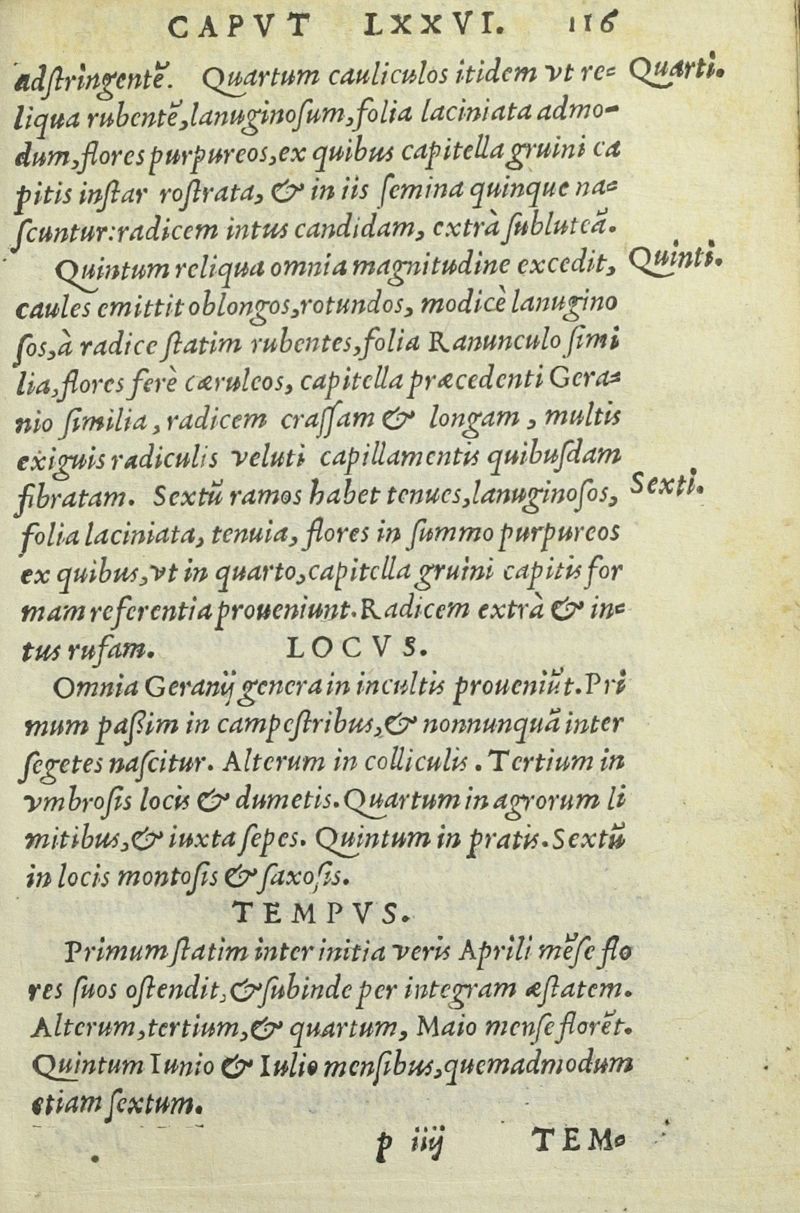 CAPVT LXXVI. 116
adſtringentẽ. Quartum cauliculos itidem vt re- Quarti.
liqua rubentẽ, lanuginoſum, folia laciniata admo-
dum, flores purpureos, ex quibus capitella gruini ca
pitis inſtar roſtrata, & in iis ſemina quinque na-
ſcuntur: radicem intus candidam, extrà ſubluteã.
Quintum reliqua omnia magnitudine excedit, Quinti.
caules emittit oblongos, rotundos, modicè lanugino
ſos, à radice ſtatim rubentes, folia Ranunculo ſimi
lia, flores ferè cæruleos, capitella præcedenti Gera-
nio ſimilia, radicem craſſam & longam, multis
exiguis radiculis veluti capillamentis quibuſdam
fibratam. Sextũ ramos habet tenues, lanuginoſos, Sexti.
folia laciniata, tenuia, flores in ſummo purpureos
ex quibus, vt in quarto, capitella gruini capitis for
mam referentia proueniunt. Radicem extrà & in-
tus rufam. LOCVS.
Omnia Geranij genera in incultis proueniũt. Pri
mum paßim in campeſtribus, & nonnunquã inter
ſegetes naſcitur. Alterum in colliculis. Tertium in
vmbroſis locis & dumetis. Quartum in agrorum li
mitibus, & iuxta ſepes. Quintum in pratis. Sextũ
in locis montoſis & ſaxoſis.
TEMPVS.
Primum ſtatim inter initia veris Aprili mẽſe flo
res ſuos oſtendit, & ſubinde per integram æſtatem.
Alterum, tertium, & quartum, Maio menſe florẽt.
Quintum Iunio & Iulio menſibus, quemadmodum
etiam ſextum.
p iiij TEM-